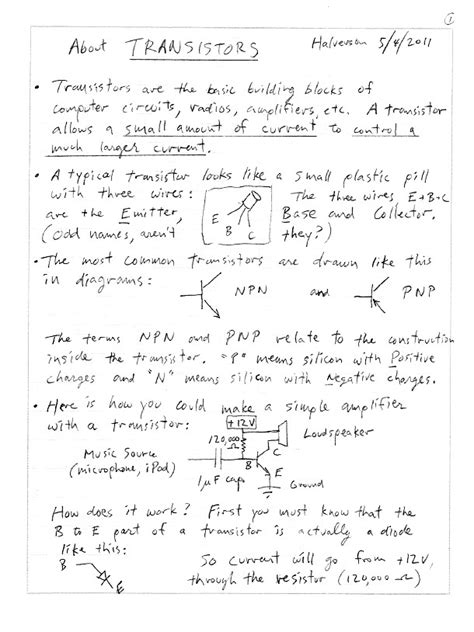 ①
About TRANSISTORS Halverson 5/4/2011
• Transistors are the basic building blocks of
computer circuits, radios, amplifiers, etc. A transistor
allows a small amount of current to control a
much larger current.
• A typical transistor looks like a small plastic pill
with three wires: The three wires, E+B+C
E B C
are the Emitter, Base and Collector.
(Odd names, aren't they?)
• The most common transistors are drawn like this
in diagrams: NPN and PNP
The terms NPN and PNP relate to the construction
inside the transistor. "P" means silicon with Positive
charges and "N" means silicon with Negative charges.
• Here is how you could make a simple amplifier
with a transistor: +12V
120,000Ω Loudspeaker
Music Source C
(microphone, iPod) B E
1µF cap. Ground
How does it work? First you must know that the
B to E part of a transistor is actually a diode
like this:
B E
So current will go from +12V,
through the resistor (120,000 Ω)